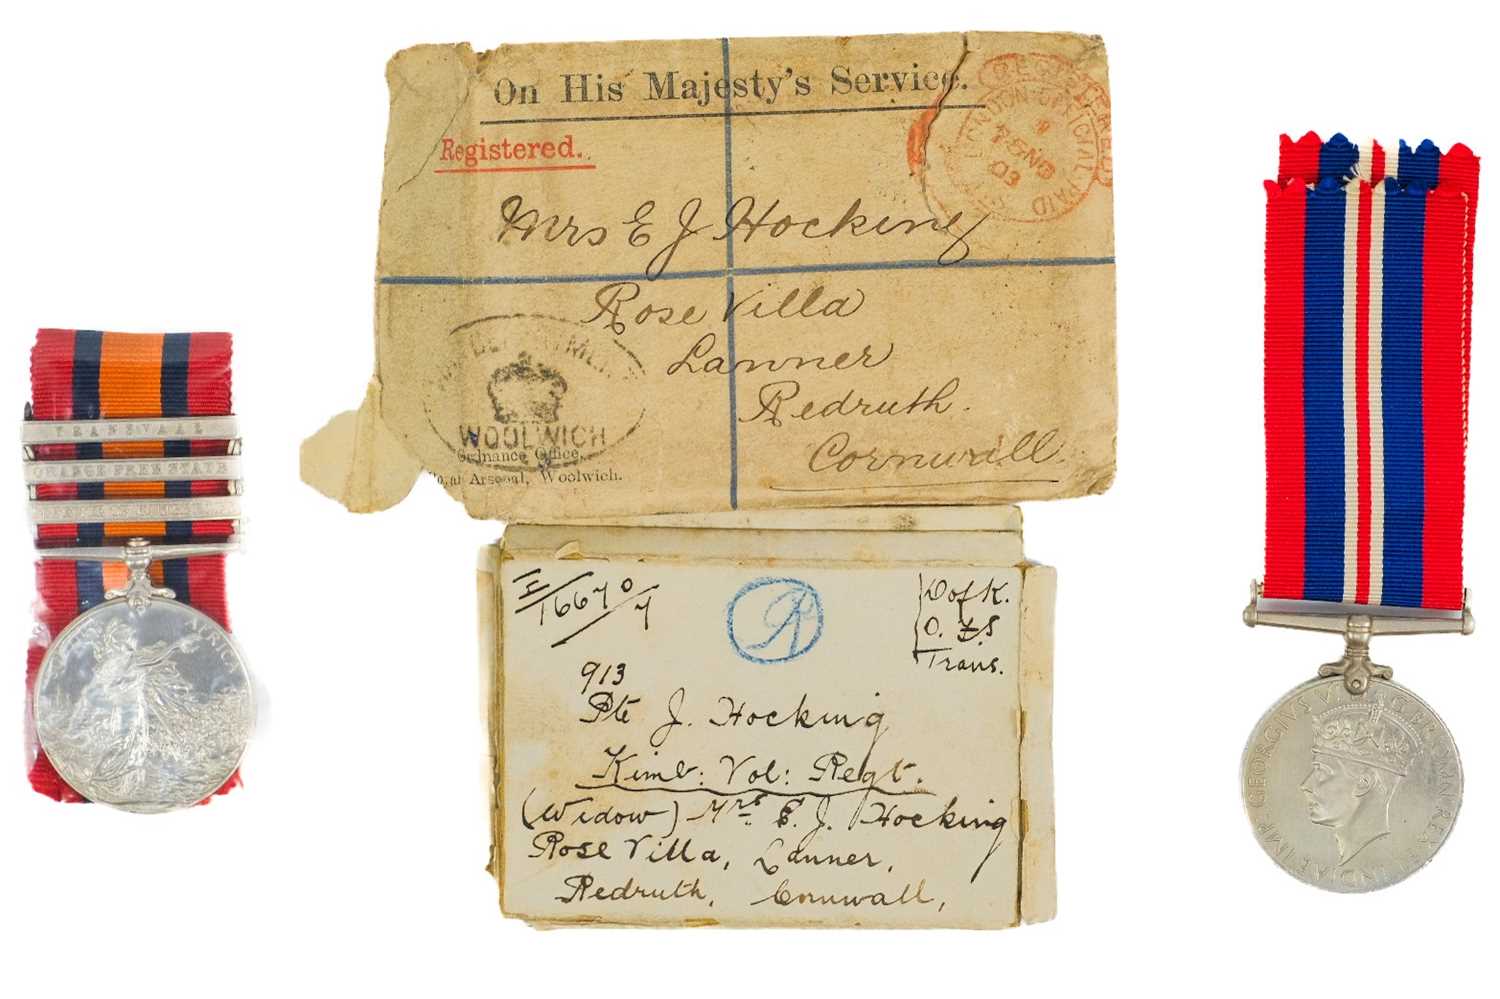 On His Majesty's Service.
Registered.
REGISTERED
LONDON OFFICIAL PAID
NO
03
Mrs E J Hocking
Rose Villa
Lanner
Redruth.
Cornwall.
WOOLWICH
Ordnance Office,
Royal Arsenal, Woolwich.
TRANSVAAL
ORANGE FREE STATE
AFRICA
E/16670/7
R
Dof K.
O. F S
Trans.
913
Pte J. Hocking
Kimb: Vol: Regt.
(Widow) Mrs E. J. Hocking
Rose Villa, Lanner,
Redruth, Cornwall,
GEORGIVS VI D:G:BR:OMN:REX ET INDIAE IMP: